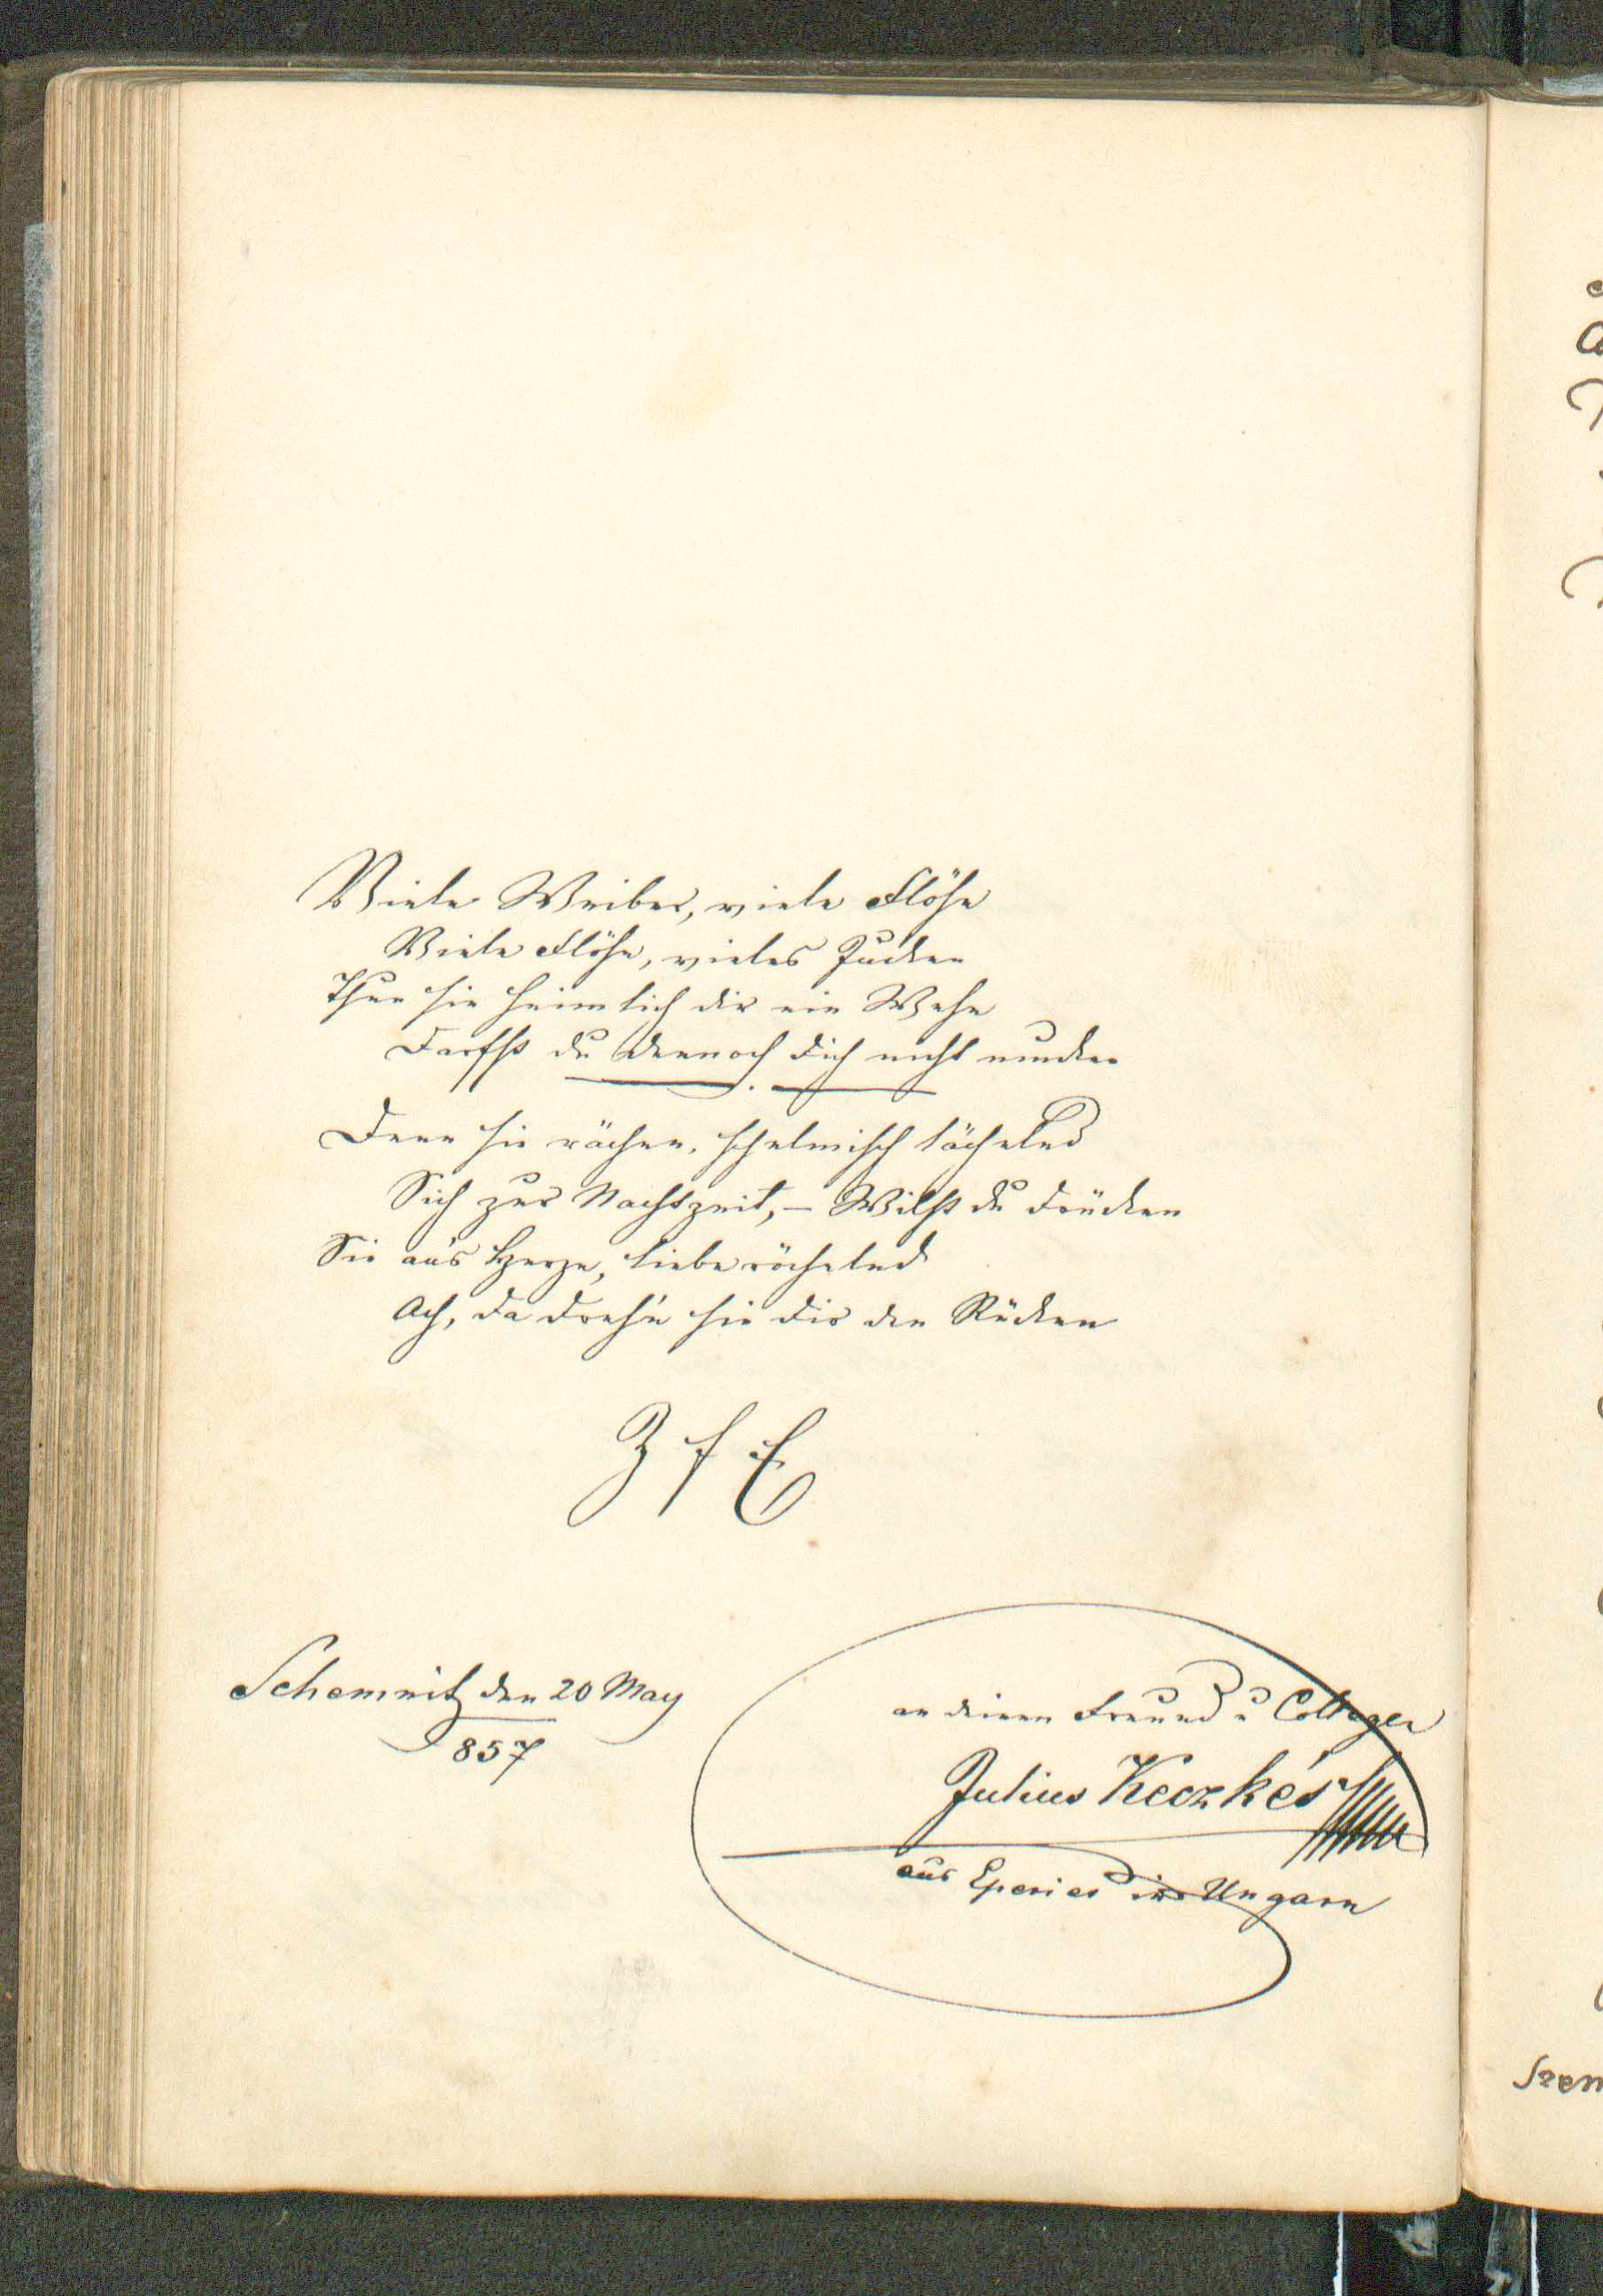 Viele Weiber, viele Flöhe
Viele Flöhe, vieles Jucken
Thun sie heimlich dir ein Wehe
Darfst du dennoch dich nicht mucken
Denn sie rächen, schelmisch lächelnd
Sich zur Nachtzeit, – Willst du drücken
Sie ans Herze, liebe röchelnd
Ach, da dreh'n sie dir den Rücken
Z f E
Schemnitz den 20 May
857
an deinen Freund u Collegen
Julius Keczkés
aus Eperies in Ungarn